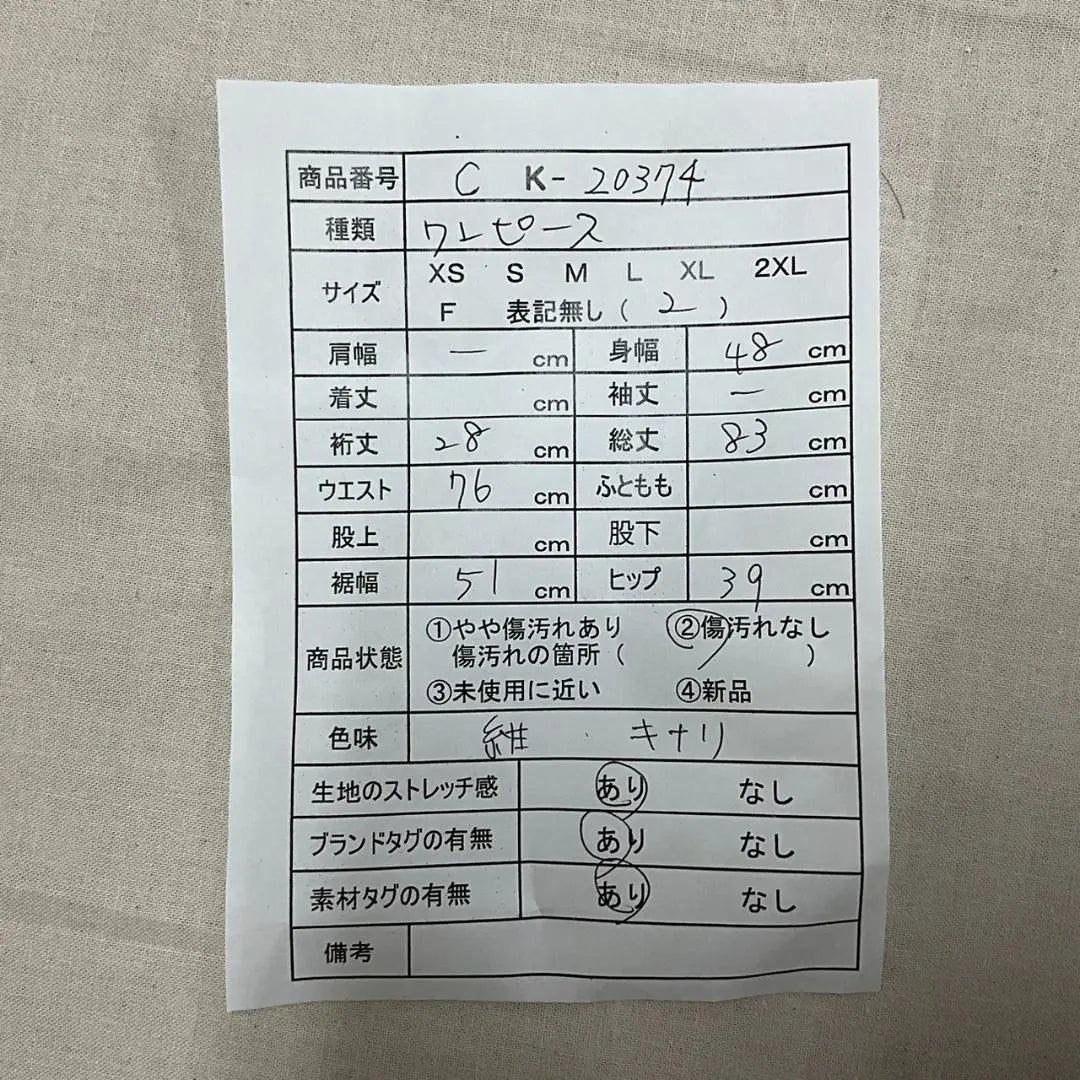 商品番号 C K- 20374
種類 ワンピース
サイズ XS S M L XL 2XL
F 表記無し ( 2 )
肩幅 ー cm 身幅 48 cm
着丈 cm 袖丈 ー cm
裄丈 28 cm 総丈 83 cm
ウエスト 76 cm ふともも cm
股上 cm 股下 cm
裾幅 51 cm ヒップ 39 cm
商品状態 ①やや傷汚れあり ②傷汚れなし
傷汚れの箇所 ( )
③未使用に近い ④新品
色味 紺 . キナリ
生地のストレッチ感 あり なし
ブランドタグの有無 あり なし
素材タグの有無 あり なし
備考